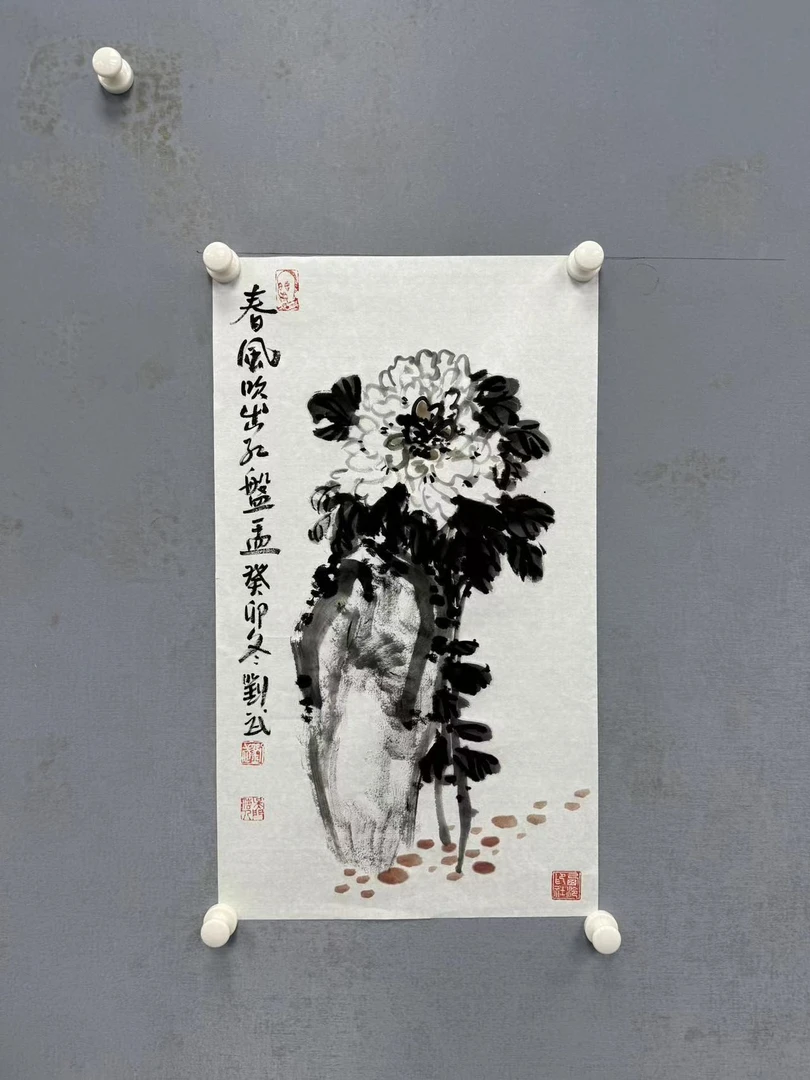 春风吹出红盤盂癸卯冬劉武